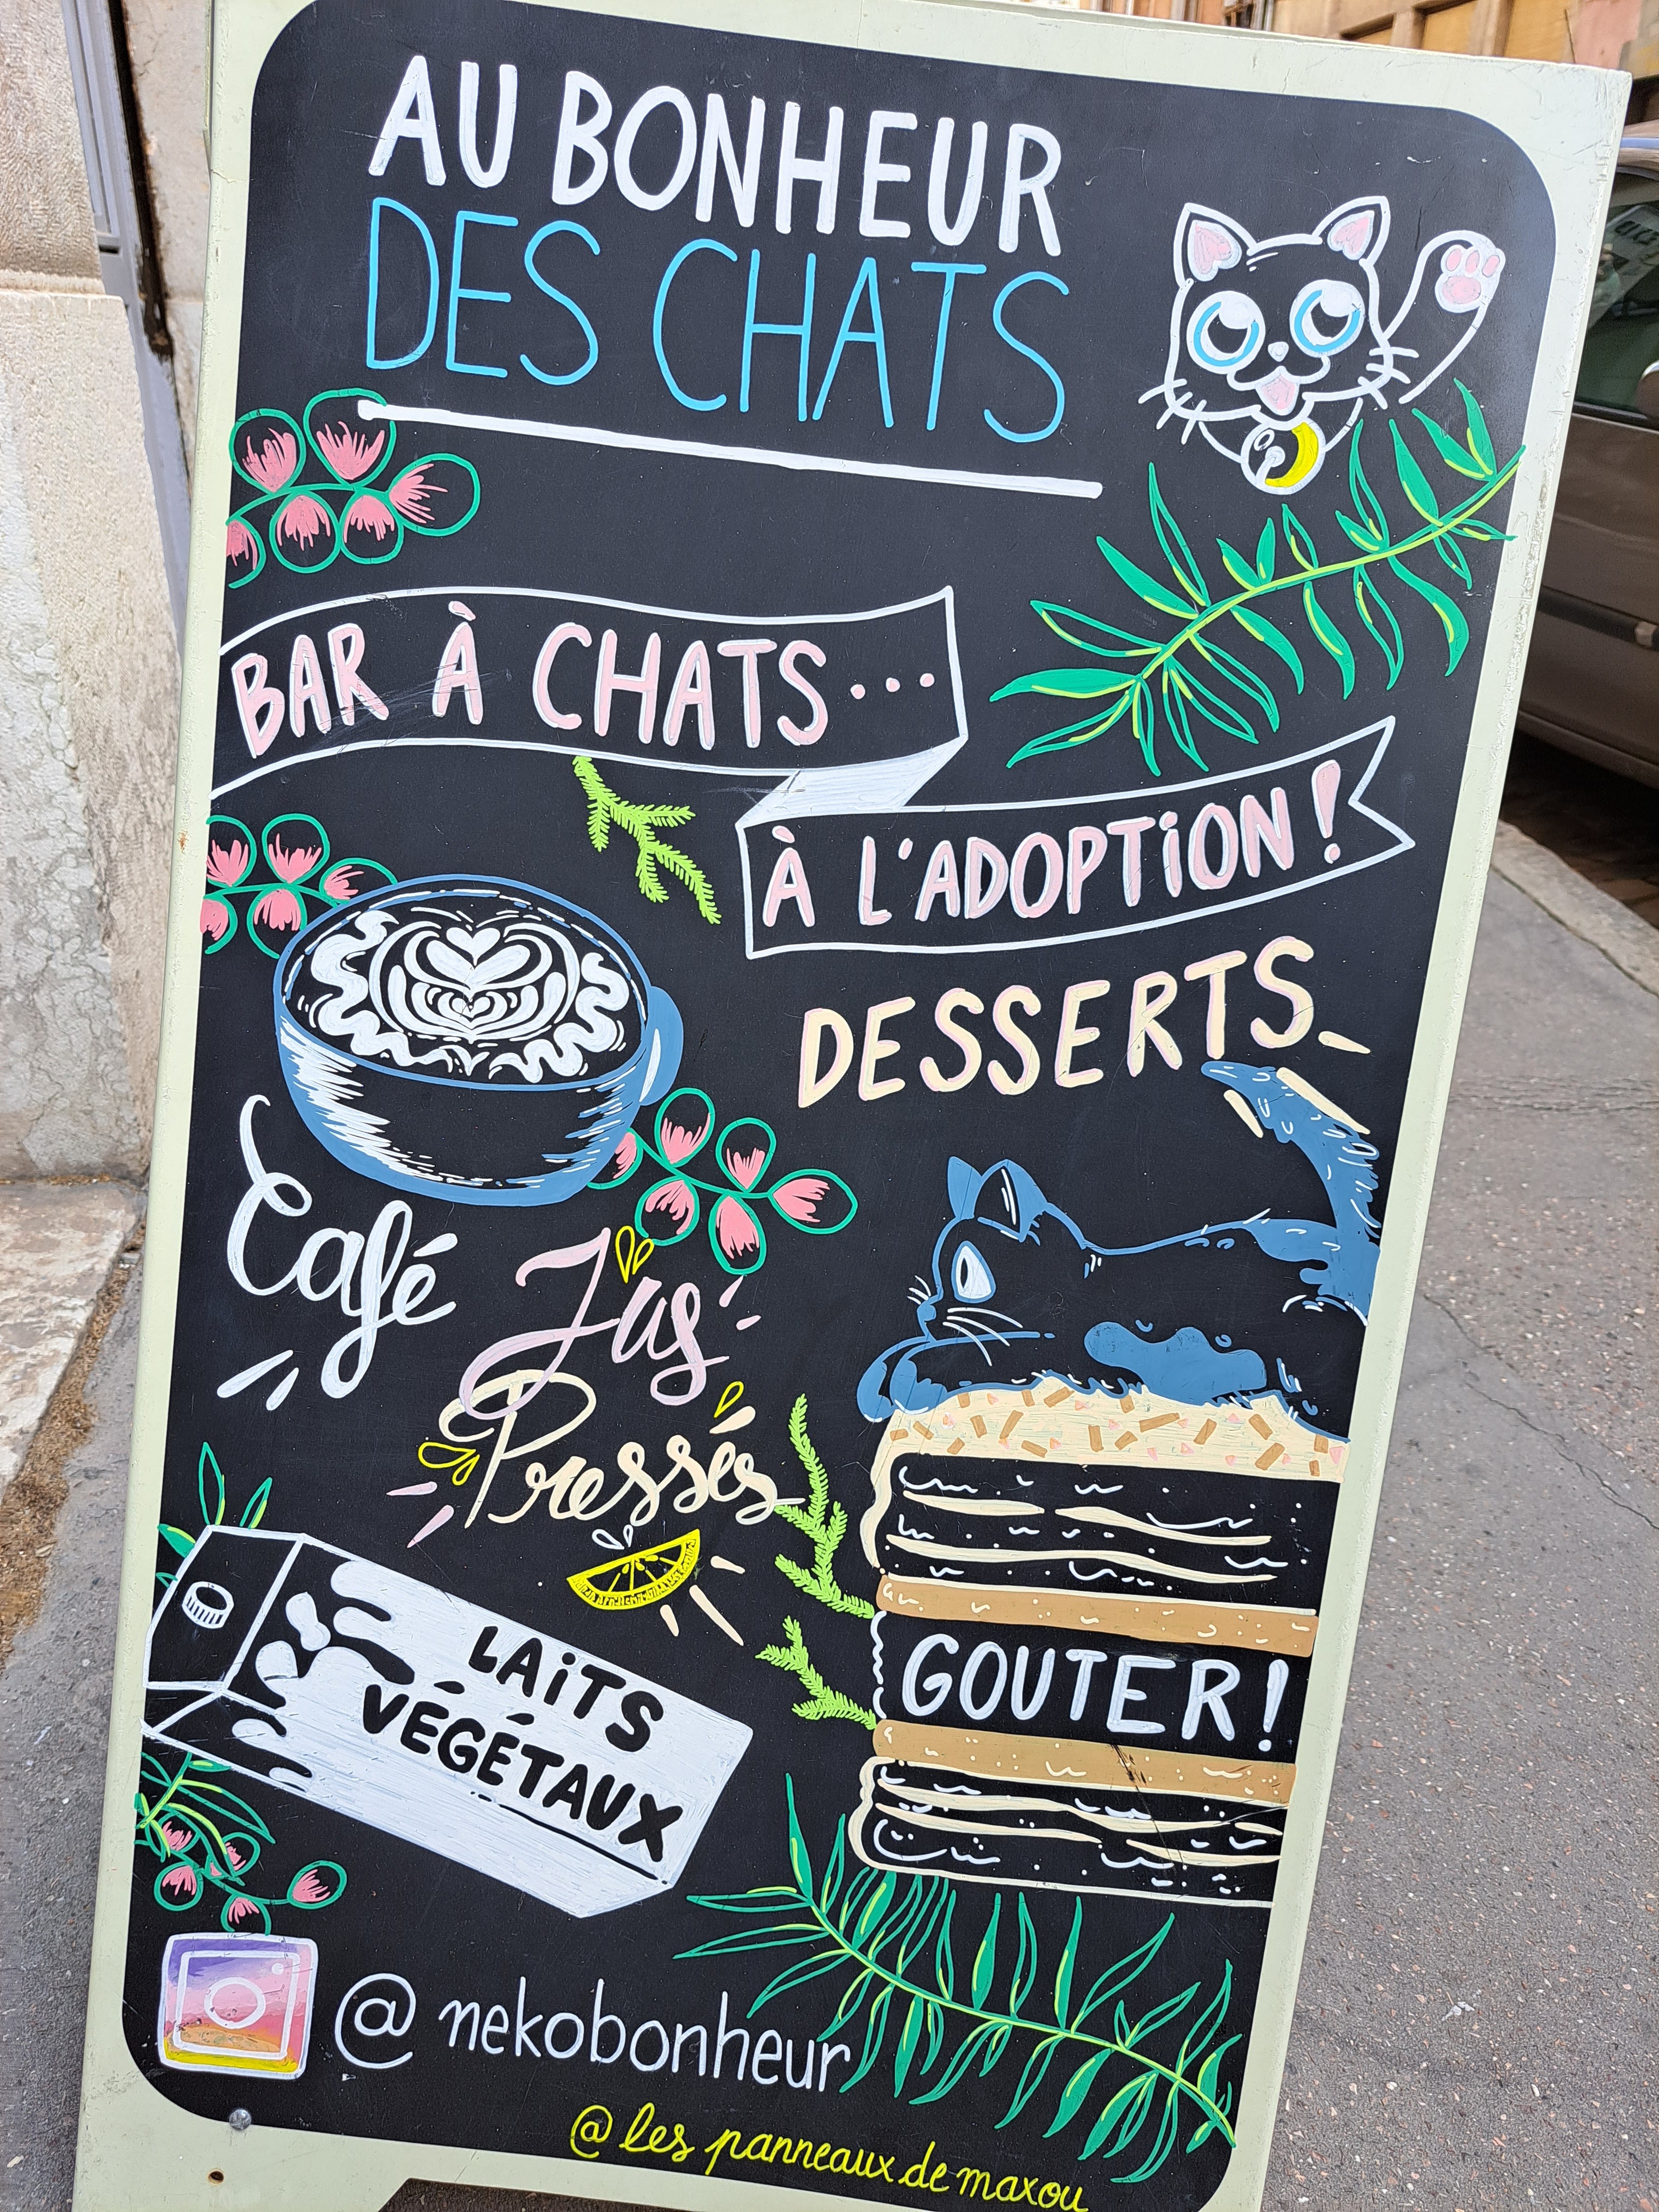 AU BONHEUR
DES CHATS
BAR À CHATS...
À L'ADOPTION!
DESSERTS
Café
Jus
Pressés
LAITS
VÉGÉTAUX
GOUTER!
@nekobonheur
@les panneaux de maxou